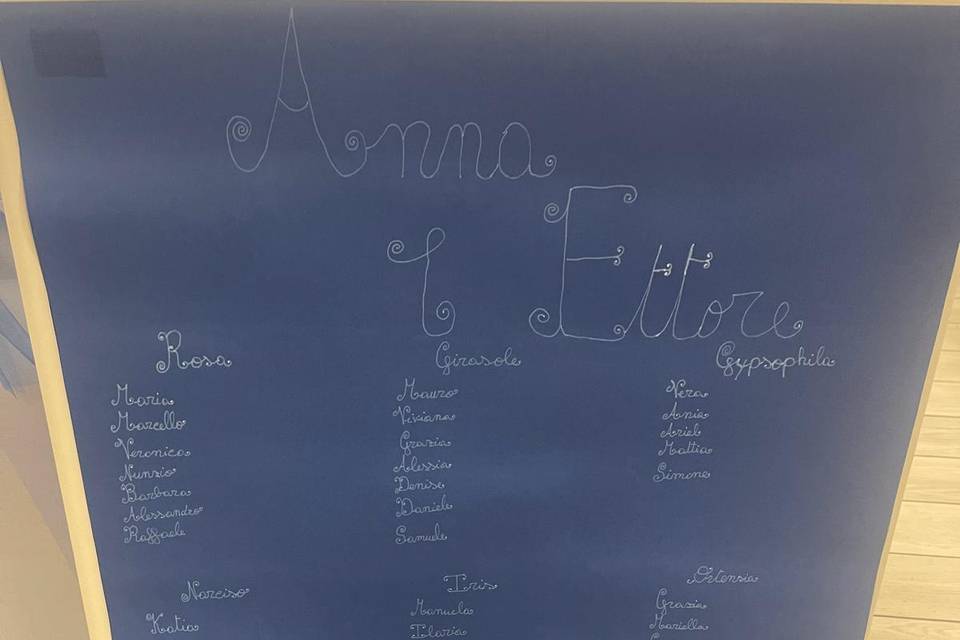 Anna
&
Ettore
Rosa
Maria
Marcello
Veronica
Nunzio
Barbara
Alessandro
Raffaele
Girasole
Mauro
Viviana
Grazia
Alessia
Denise
Daniele
Samuele
Gypsophila
Vera
Ania
Ariel
Mattia
Simone
Narciso
Katia
Iris
Manuela
Ilaria
Ortensia
Grazia
Mariella